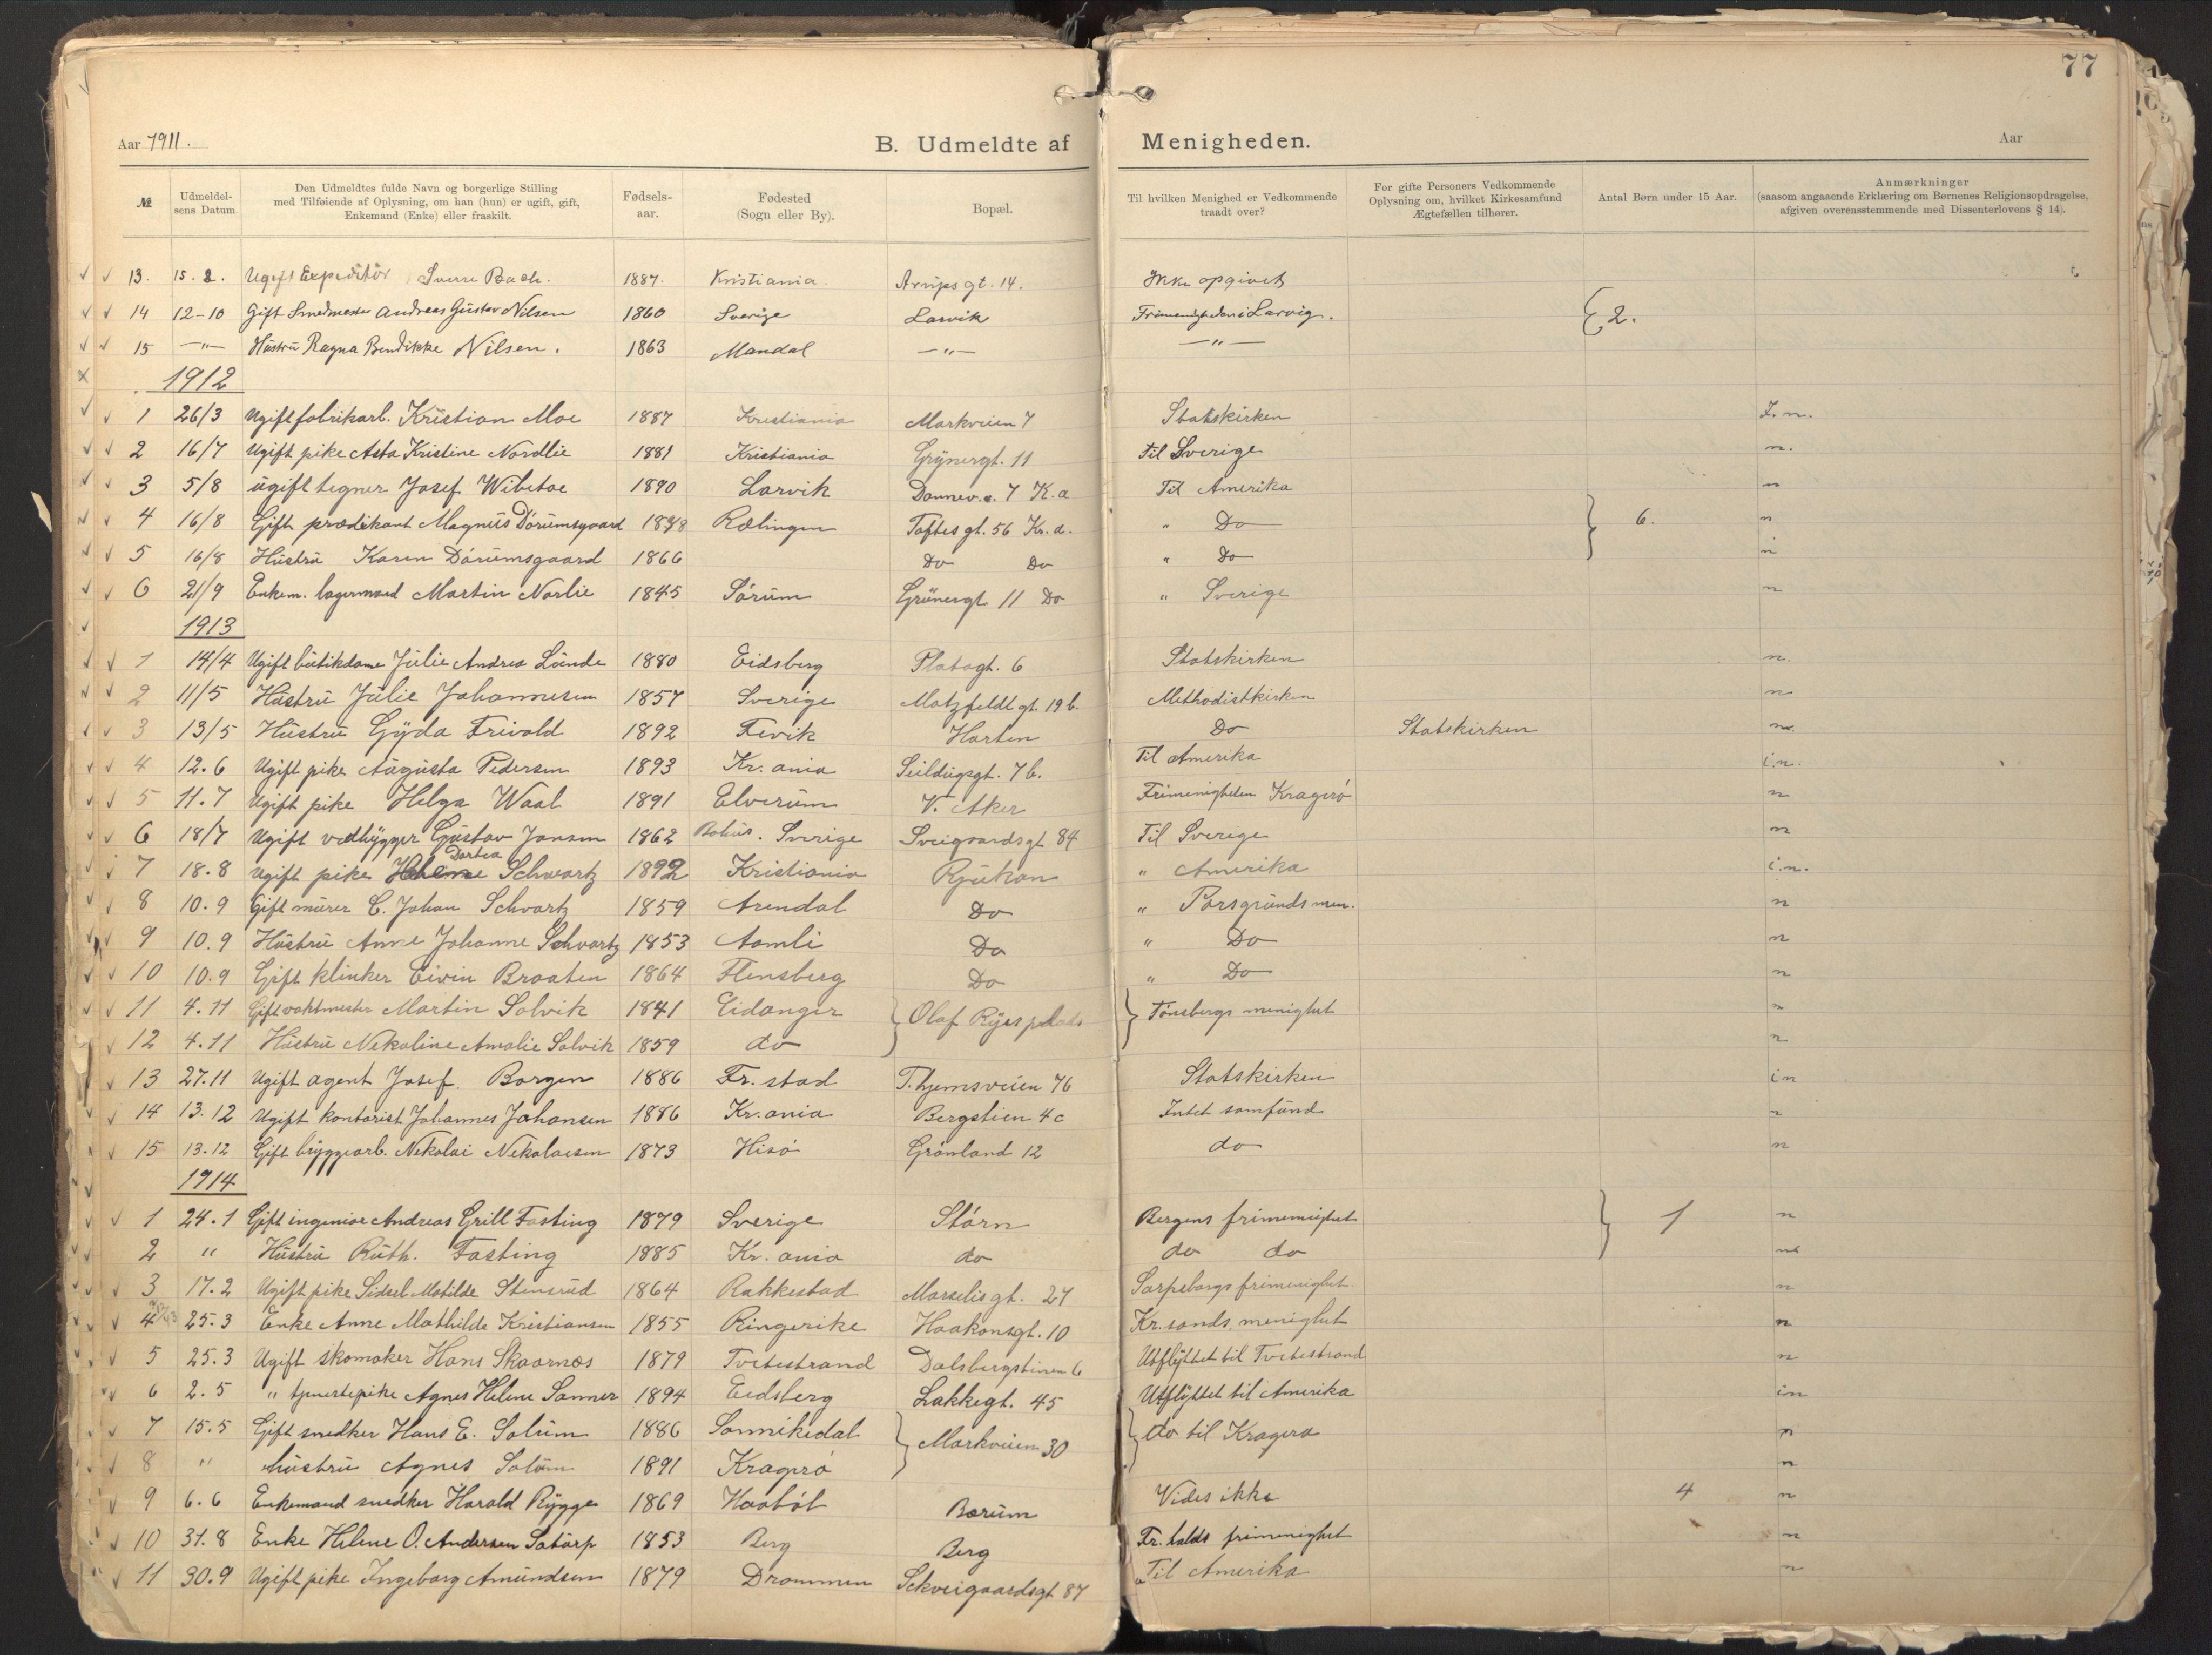 77
Aar 1911. B. Udmeldte af Menigheden. Aar
№ Udmeldelsens Datum Den Udmeldtes fulde Navn og borgerlige Stilling med Tilføiende af Oplysning, om han (hun) er ugift, gift, Enkemand (Enke) eller fraskilt. Fødselsaar. Fødested (Sogn eller By). Bopæl. Til hvilken Menighed er Vedkommende traadt over? For gifte Personers Vedkommende Oplysning om, hvilket Kirkesamfund Ægtefællen tilhører. Antal Børn under 15 Aar. Anmærkninger (saasom angaaende Erklæring om Børnenes Religionsopdragelse, afgiven overensstemmende med Dissenterlovens § 14).
13. 15.2. Ugift Expeditör Sverre Bach. 1887. Kristiania. Arupsgt. 14. Ikke opgivet
14 12-10 Gift Smedmester Andreas Gustav Nilsen 1860 Sverige Larvik Frimenigheden i Larvig. 2.
15 -"- Hustru Ragna Bendikke Nilsen. 1863 Mandal -"- -"-
1912
1 26/3 Ugift fabrikarb. Kristian Moe 1887 Kristiania Markveien 7 Statskirken I.n.
2 16/7 Ugift pike Asta Kristine Nordlie 1881 Kristiania Grünergt. 11 Til Sverige n.
3 5/8 ugift tegner Josef Wibetoe 1890 Larvik Dannev.v. 7 K.a Til Amerika n
4 16/8 Gift prædikant Magnus Dörumsgaard 1878 Rælingen Toftesgt. 56 Kr.a. " Do 6. n
5 16/8 Hustru Karen Dörumsgaard 1866 Do Do " Do n
6 21/9 Enkem. lagermand Martin Norlie 1845 Sörum Grünergt 11 Do " Sverige n
1913
1 14/4 Ugift butikdame Julie Andrea Lunde 1880 Eidsberg Platogt. 6 Statskirken n.
2 11/5 Hustru Julie Johannesen 1857 Sverige Motzfeldtgt. 19 b. Methodistkirken n
3 13/5 Hustru Gyda Frivold 1892 Fevik Horten Do Statskirken n.
4 12.6 Ugift pike Augusta Pedersen 1893 Kr.ania Seildugsgt. 7 b. Til Amerika i.n.
5 11.7 Ugift pike Helga Waal 1891 Elverum V. Aker Frimenigheten Kragerö n
6 18/7 Ugift vedhygger Gustav Jansen 1862 Bohus. Sverige Sveigaardsgt 84 Til Sverige n
7 18.8 Ugift pike Helene Dortea Schwartz 1892 Kristiania Rjukan " Amerika i.n.
8 10.9 Gift murer C. Johan Schvartz 1859 Arendal Do " Porsgrunds men. n
9 10.9 Hustru Anne Johanne Schvartz 1853 Aamli Do " Do n
10 10.9 Gift klinker Eivin Braaten 1864 Flensberg Do " Do n
11 4.11 Gift vaktmester Martin Solvik 1841 Eidanger Olaf Ryes plads Tönsbergs menighet n
12 4.11 Hustru Nekoline Amalie Solvik 1859 do n
13 27.11 Ugift agent Josef Borgen 1886 Fr. stad T.hjemsveien 76 Statskirken in
14 13.12 Ugift kontorist Johannes Johansen 1886 Kr.ania Bergstien 4c Intet samfund n
15 13.12 Gift bryggearb. Nekolai Nekolaisen 1873 Hisö Grönland 12 do n
1914
1 24.1 Gift ingeniør Andreas Grill Fasting 1879 Sverige Stören Bergens frimenighet 1 n
2 " Hustru Ruth. Fasting 1885 Kr.ania do do do n
3 17.2 Ugift pike Sidsel Matilde Stensrud 1864 Rakkestad Marselisgt. 27 Sarpsborgs frimenighet n
4 25.3 Enke Anne Mathilde Kristiansen 1855 Ringerike Haakonsgt. 10 Kr.sands menighet n
5 25.3 Ugift skomaker Hans Skaarnes 1879 Tvedestrand Dalsbergstien 6 Utflyttet til Tvedestrand n
6 2.5 " tjenestepike Agnes Helene Sanner 1894 Eidsberg Lakkegt. 45 Utflyttet til Amerika in
7 15.5 Gift snedker Hans E. Solum 1886 Sannikedal Markveien 30 do til Kragerø n
8 " hustru Agnes Solum 1891 Kragerö n
9 6.6 Enkemand snedker Harald Rygge 1869 Haaböl Bærum Vides ikke 4 n
10 31.8 Enke Helene O. Andersen Satorp 1853 Berg Berg Fr.halds frimenighet n
11 30.9 Ugift pike Ingeborg Amundsen 1879 Drammen Schveigaardsgt 87 Til Amerika n